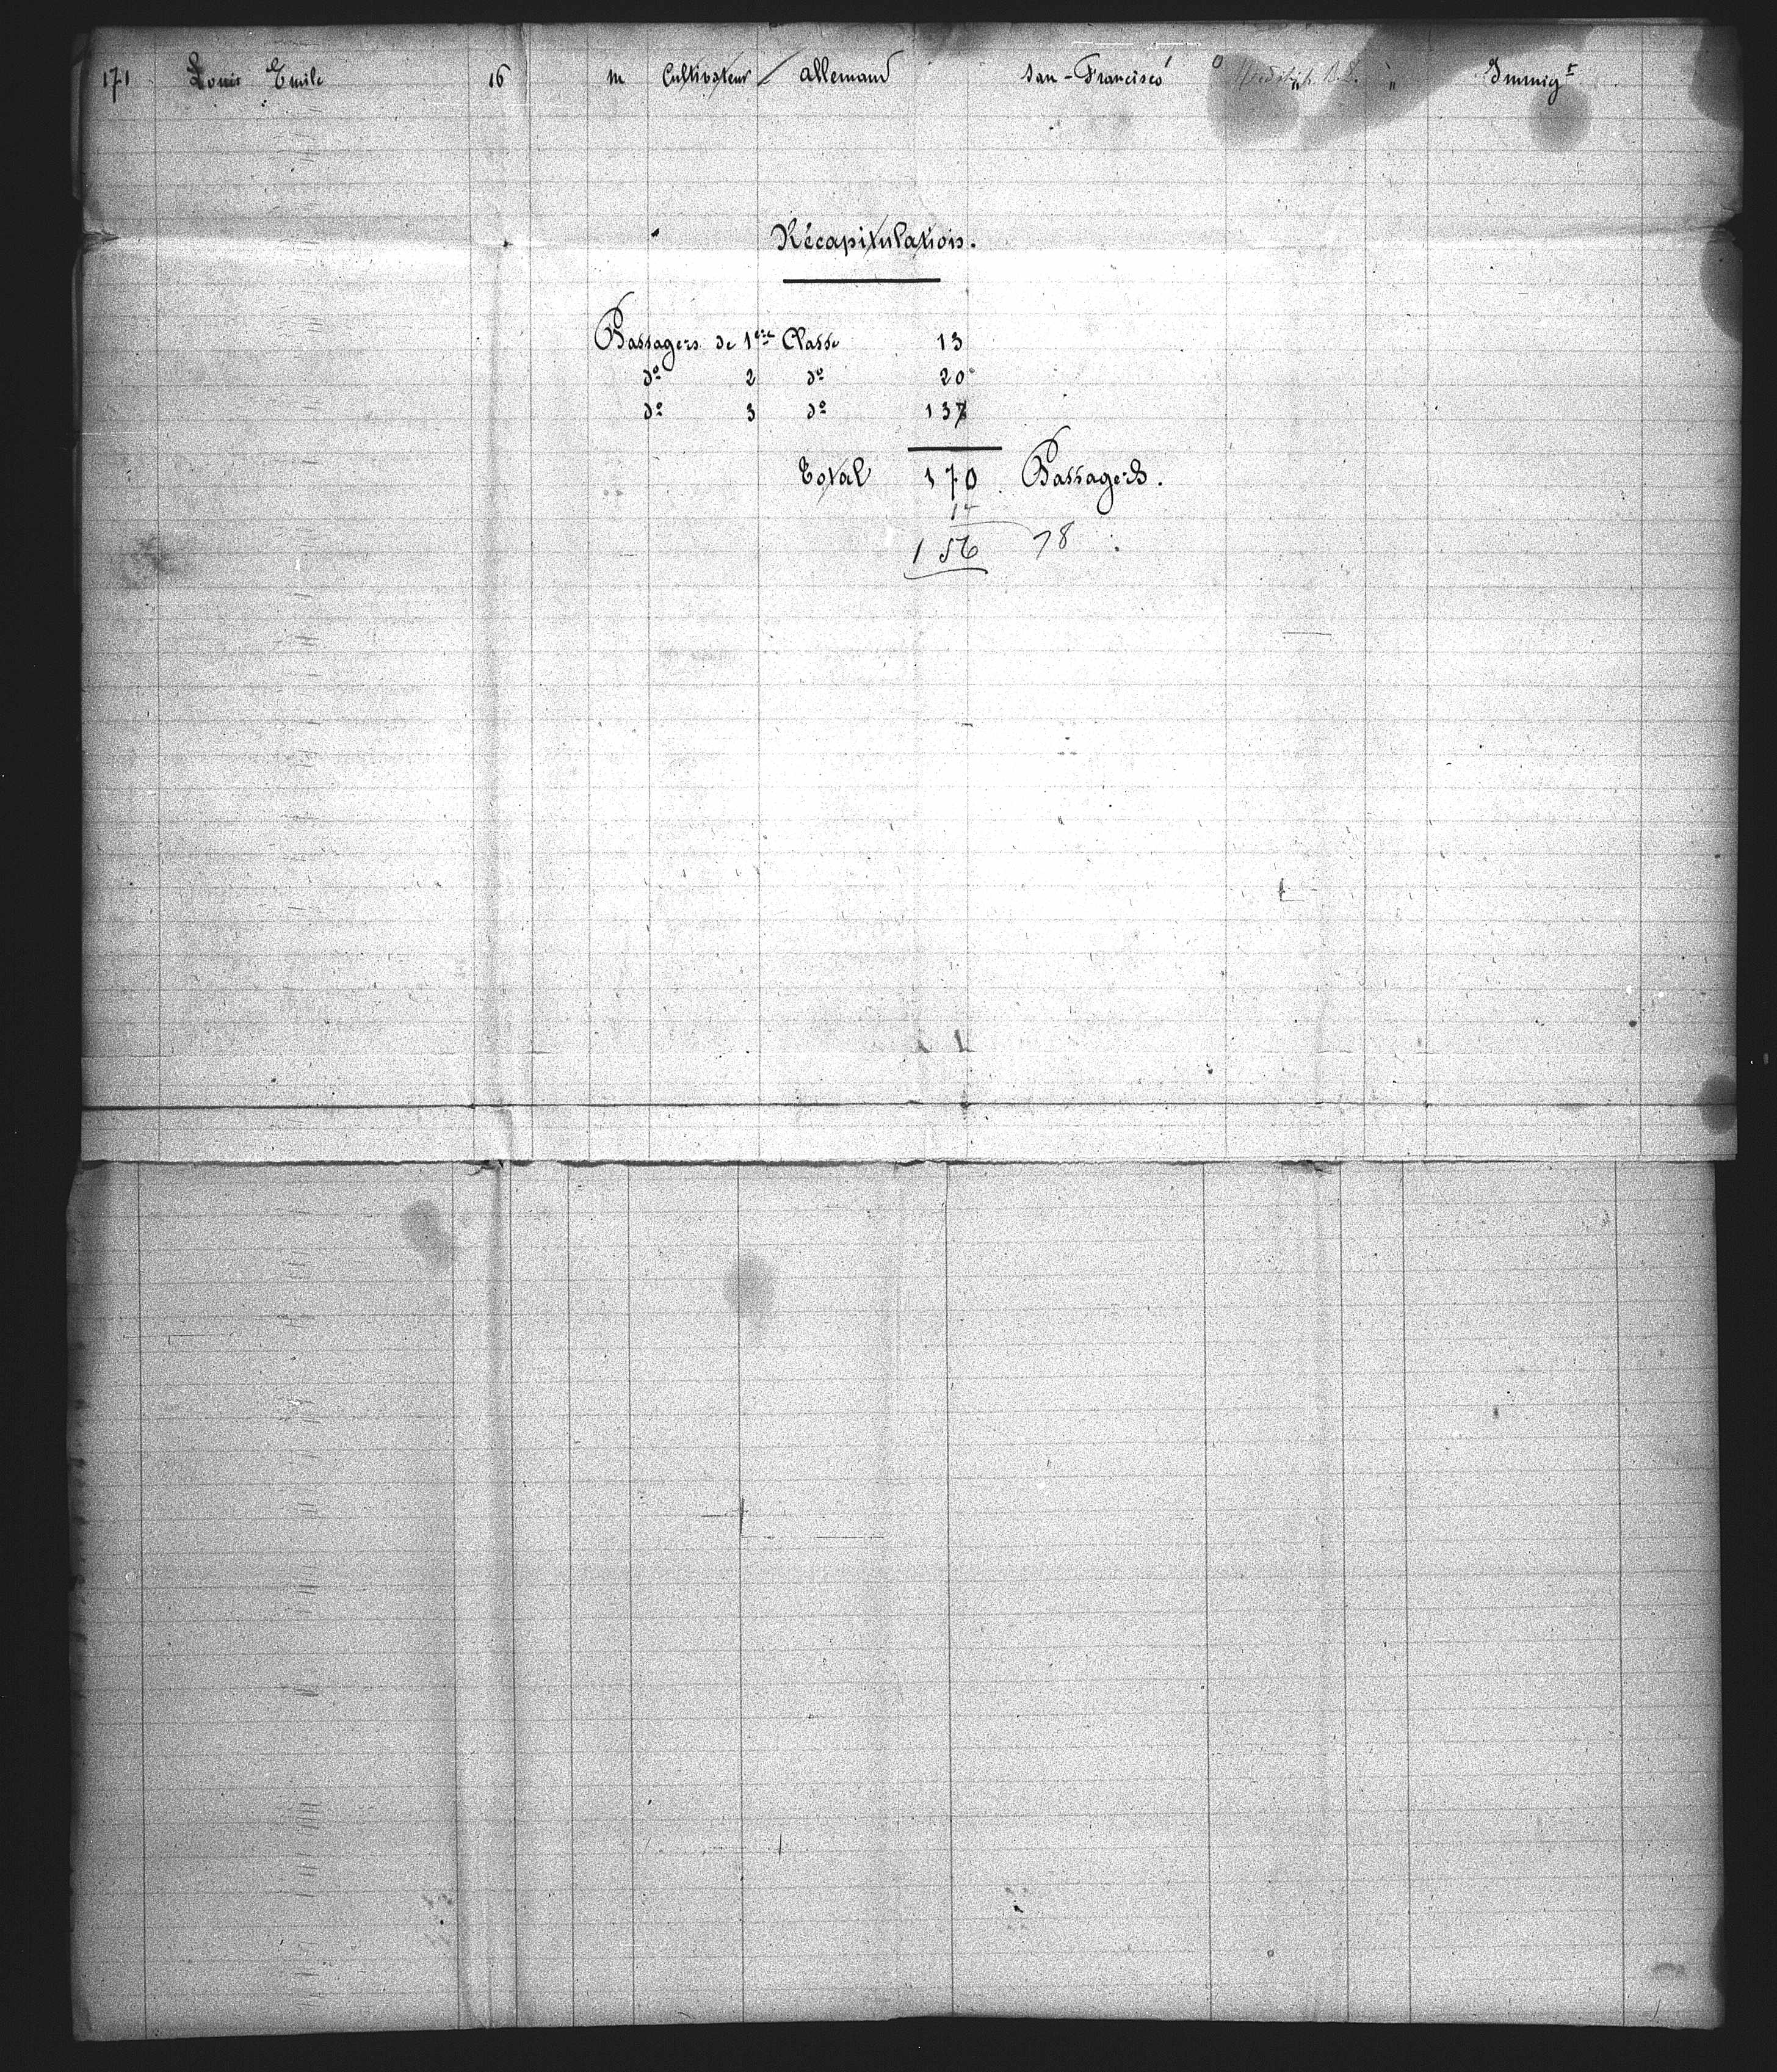 171 Louis Emile 16 m Cultivateur Allemand San-Francisco " " Immigt
Récapitulation.
Passagers de 1ère Classe 13
do 2 do 20
do 3 do 137
Total 170 Passagers.
14
156 78